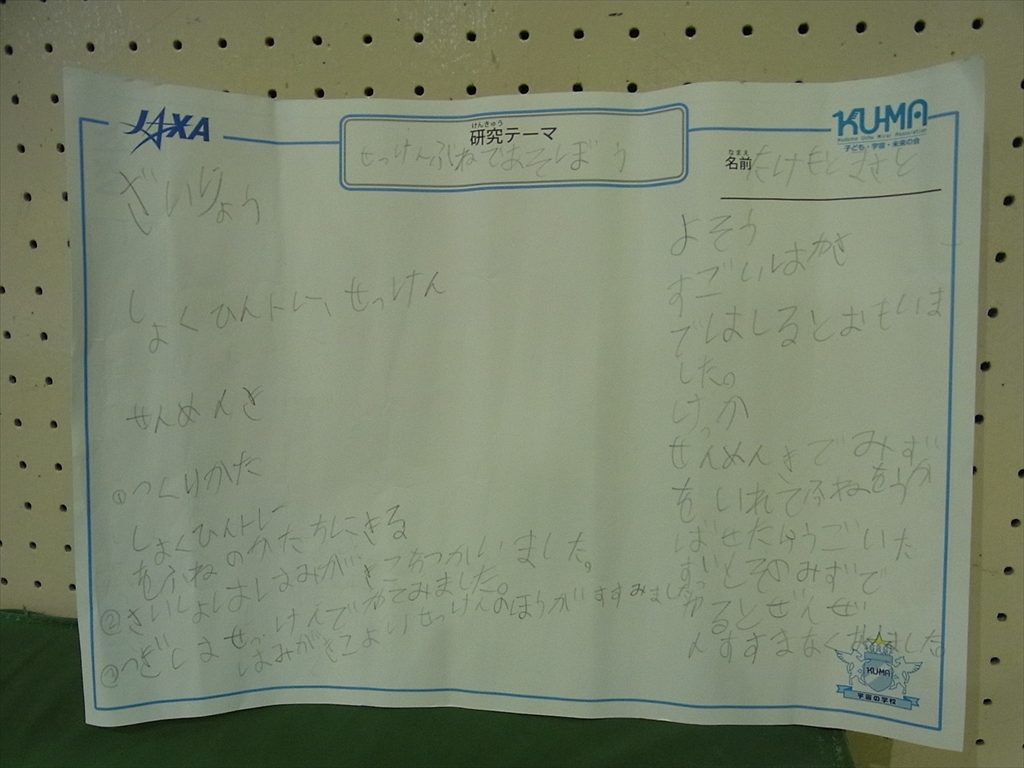 JAXA
けんきゅう
研究テーマ
せっけんふねであそぼう
KU-MA
子ども・宇宙・未来の会
なまえ
名前
たけもと まさと
ざいりょう
しょくひんトレー、せっけん
せんめんき
①つくりかた
しょくひんトレー
をふねのかたちにきる
②さいしょしはしはみがきこをつかいました。
③つぎしませっけんでやてみました。
はみがきこよりせっけんのほうがすすみました
よそう
すごいはかさ
ではしるとおもいま
した。
けっか
せんめんきでみず
をいれてふねをうか
ばせたらうごいた
ずっとそのみずで
やるとぜんぜ
んすすまなくなりました
KU-MA
宇宙の学校